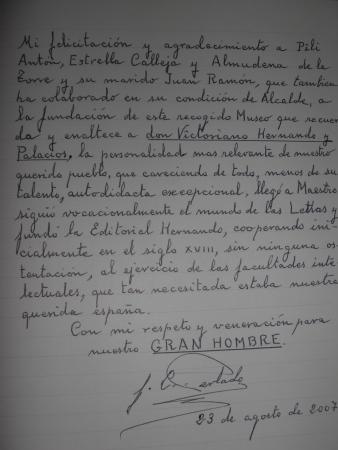 Mi felicitación y agradecimiento a Pili
Antón, Estrella Calleja y Almudena de la
Torre y su marido Juan Ramón, que tambien
ha colaborado en su condición de Alcalde, a
la fundación de este recogido Museo que recuer
da y enaltece a don Victoriano Hernando y
Palacios, la personalidad mas relevante de nuestro
querido pueblo, que careciendo de todo, menos de su
talento, autodidacta excepcional, llegó a Maestro
siguio vocacionalmente el mundo de las Letras y
fundó la Editorial Hernando, cooperando ini-
cialmente en el siglo XVIII, sin ninguna os-
tentación, al ejercicio de las facultades inte
lectuales, que tan necesitada estaba nuestra
querida españa.
Con mi respeto y veneración para
nuestro GRAN HOMBRE.
23 de agosto de 2007